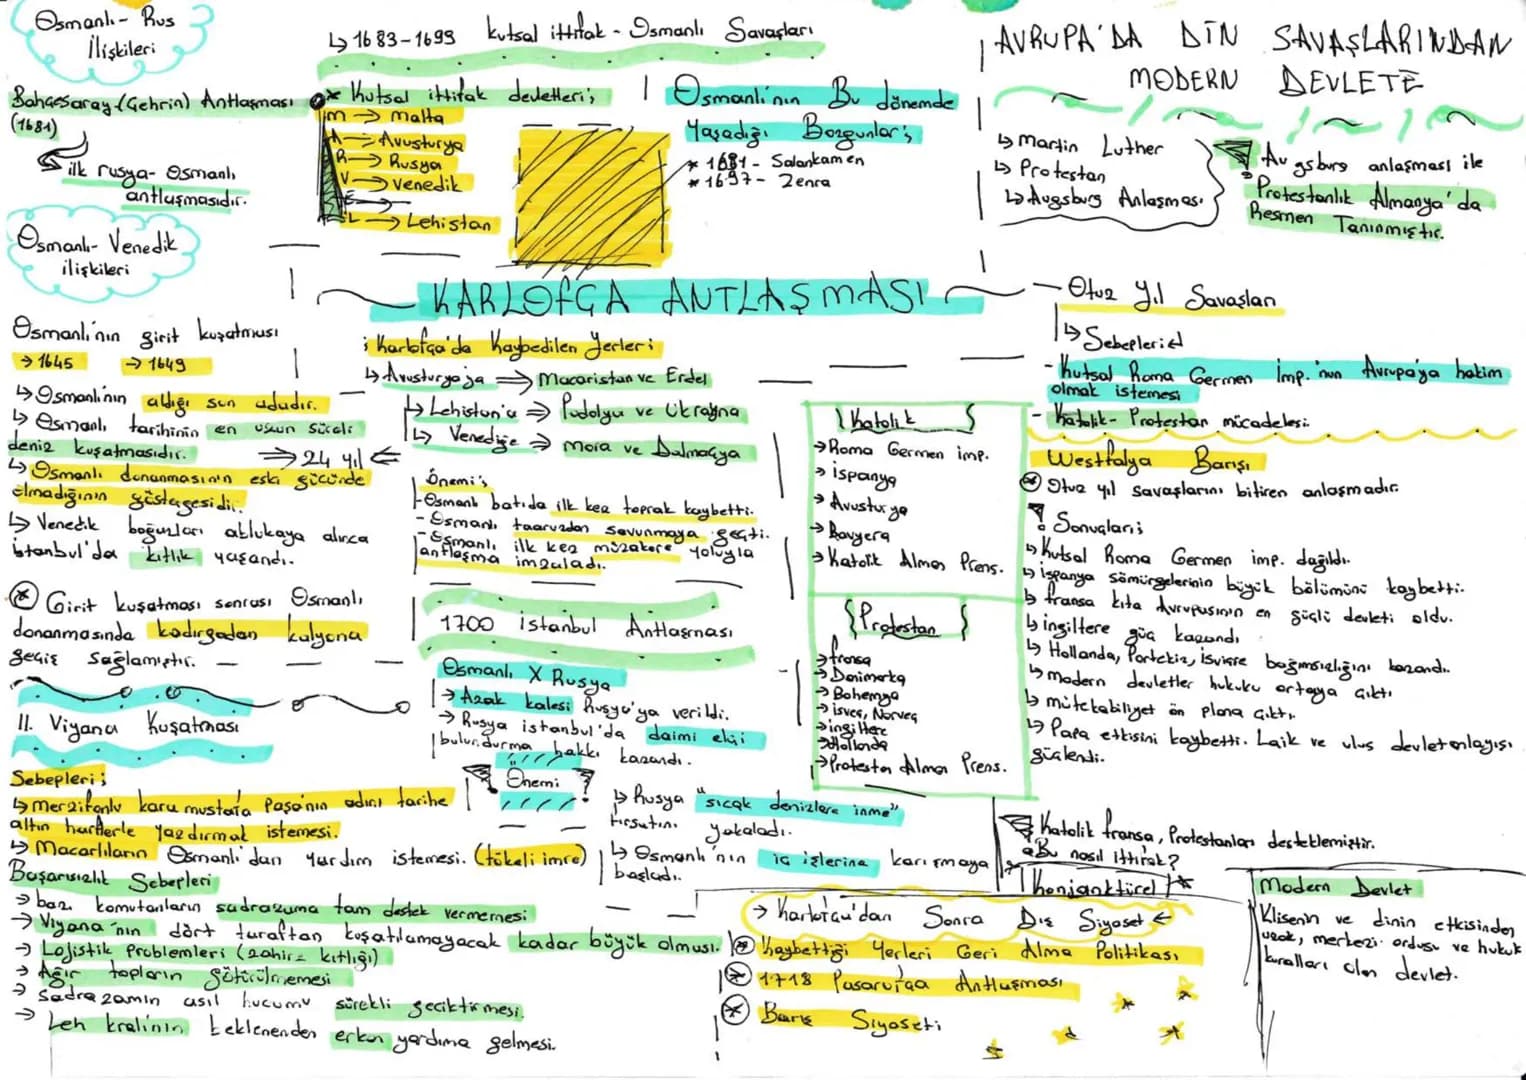 Osmanlı- Rus
İlişkileri
Bahçesaray (Çehrin) Antlaşması
(1681)
ilk rusya- Osmanlı
antlaşmasıdır.
Osmanlı- Venedik
ilişkileri
Osmanlı'nın girit kuşatması
→ 1645 → 1649
↳ Osmanlı'nın aldığı son adadır.
↳ Osmanlı tarihinin en uzun süreli
deniz kuşatmasıdır. ⇒ 24 yıl ⇐
↳ Osmanlı donanmasının eski gücünde
olmadığının göstergesidir.
↳ Venedik boğazları ablukaya alınca
İstanbul'da kıtlık yaşandı.
Girit kuşatması sonrası Osmanlı
donanmasında kadırgadan kalyona
geçiş sağlamıştır.
II. Viyana Kuşatması
Sebepleri;
↳ merzifonlu kara mustafa Paşa'nın adını tarihe
altın harflerle yazdırmak istemesi.
↳ Macarlıların Osmanlı'dan yardım istemesi. (tökeli imre)
Başarısızlık Sebepleri
→ bazı komutanların sadrazama tam destek vermemesi
→ Viyana'nın dört taraftan kuşatılamayacak kadar büyük olması.
→ Lojistik Problemleri (zahire kıtlığı)
→ Ağır topların götürülmemesi
→ Sadrazamın asıl hucumu sürekli geciktirmesi.
→ Leh kralının beklenenden erken yardıma gelmesi.
↳ 1683-1699 kutsal ittifak - Osmanlı Savaşları
* Kutsal ittifak devletleri;
M → Malta
A → Avusturya
R → Rusya
V → Venedik
E →
L → Lehistan
Osmanlı'nın Bu dönemde
Yaşadığı Bozgunlar;
* 1691- Salankamen
* 1697- Zenta
KARLOFÇA ANTLAŞMASI
; Karlofça'da Kaybedilen Yerler;
↳ Avusturya'ya ⇒ Macaristan ve Erdel
↳ Lehistan'a ⇒ Podolya ve Ukrayna
↳ Venediğe ⇒ mora ve Dalmaçya
Önemi;
-Osmanlı batıda ilk kez toprak kaybetti.
- Osmanlı taaruzdan savunmaya geçti.
- Osmanlı, ilk kez müzakere yoluyla
antlaşma imzaladı.
1700 istanbul Antlaşması
Osmanlı X Rusya
→ Azak kalesi Rusya'ya verildi.
→ Rusya istanbul'da daimi elçi
bulundurma hakkı kazandı.
Önemi
↳ Rusya "sıcak denizlere inme"
fırsatını yakaladı.
↳ Osmanlı'nın iç işlerine karışmaya
başladı.
→ Karlofça'dan Sonra Dış Siyaset ←
Kaybettiği Yerleri Geri Alma Politikası
1718 Pasarofça Antlaşması
Barış Siyaseti
AVRUPA'DA DİN SAVAŞLARINDAN
MODERN DEVLETE
↳ Martin Luther
↳ Protestan
↳ Augsburg Anlaşması
Augsburg anlaşması ile
Protestanlık Almanya'da
Resmen Tanınmıştır.
Otuz Yıl Savaşları
↳ Sebepleri
- Kutsal Roma Germen İmp.'nun Avrupa'ya hakim
olmak istemesi
- Katolik- Protestan mücadelesi.
Westfalya Barışı
Otuz yıl savaşlarını bitiren anlaşmadır.
Sonuçları;
↳ Kutsal Roma Germen imp. dağıldı.
↳ ispanya sömürgelerinin büyük bölümünü kaybetti.
↳ fransa kıta Avrupasının en güçlü devleti oldu.
↳ ingiltere güç kazandı
↳ Hollanda, Portekiz, isviçre bağımsızlığını kazandı.
↳ modern devletler hukuku ortaya çıktı
↳ mütekabiliyet ön plana çıktı.
↳ Papa etkisini kaybetti. Laik ve ulus devlet anlayışı
güçlendi.
Katolik
→ Roma Germen imp.
→ ispanya
→ Avusturya
→ Bavyera
→ Katolik Alman Prens.
Protestan
→ fransa
→ Danimarka
→ Bohemya
→ isveç, Norveç
→ ingiltere
→ Hollanda
→ Protestan Alman Prens.
Katolik fransa, Protestanları desteklemiştir.
Bu nasıl ittifak?
Konjonktürel
Modern Devlet
Klisenin ve dinin etkisinden
uzak, merkezi ordusu ve hukuk
kuralları olan devlet.